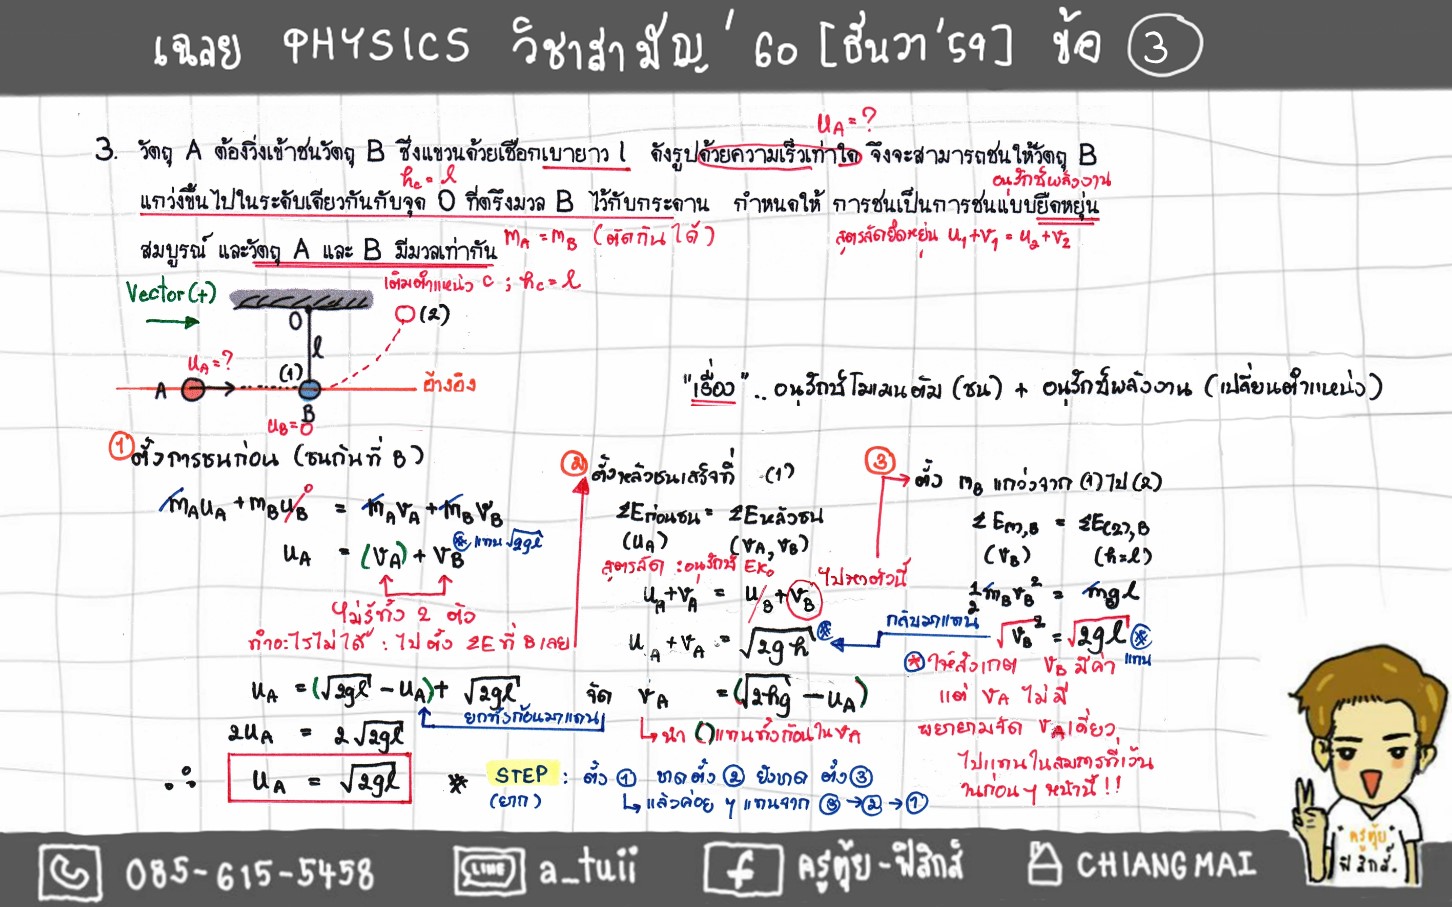 เฉลย PHYSICS วิชาสามัญ'60 [ธันวา'59] ข้อ 3
uA = ?
3. วัตถุ A ต้องวิ่งเข้าชนวัตถุ B ซึ่งแขวนด้วยเชือกเบายาว l ดังรูปด้วยความเร็วเท่าใด จึงจะสามารถชนให้วัตถุ B
hc = l
อนุรักษ์พลังงาน
แกว่งขึ้นไปในระดับเดียวกันกับจุด O ที่ตรึงมวล B ไว้กับกระดาน กำหนดให้ การชนเป็นการชนแบบยืดหยุ่น
สมบูรณ์ และวัตถุ A และ B มีมวลเท่ากัน
mA = mB (ตัดกันได้)
สูตรลัดยืดหยุ่น u1+v1 = u2+v2
Vector (+)
เดิมตำแหน่ง C ; hc = l
O
(2)
l
uA = ?
(1)
A
อ้างอิง
B
uB = 0
"เรื่อง".. อนุรักษ์โมเมนตัม (ชน) + อนุรักษ์พลังงาน (เปลี่ยนตำแหน่ง)
1 ตั้งการชนก่อน (ชนกันที่ B)
mAuA + mBuB 0 = mAvA + mBvB
uA = (vA) + vB * แทน √2gl
ไม่รู้ทั้ง 2 ตัว
ทำอะไรไม่ได้ : ไปตั้ง ΣE ที่ B เลย
2 ตั้งหลังชนเสร็จที่ (1)
ΣEก่อนชน = ΣEหลังชน
(uA) (vA, vB)
สูตรลัด : อนุรักษ์ Ek
ไปหาตัวนี้
uA + vA = uB + vB
uA + vA = √2gh *
จัด vA = (√2hg - uA)
นำ () แทนทั้งก้อนใน vA
3 ตั้ง mB แกว่งจาก (1) ไป (2)
ΣE(1),B = ΣE(2),B
(vB) (h=l)
1/2 mBvB² = mgl
กลับมาแทน
√vB² = √2gl * แทน
* ให้สังเกต vB มีค่า
แต่ vA ไม่มี
พยายามจัด vA เดี่ยว
ไปแทนในสมการที่เว้น
ในก่อนๆ หน้านี้ !!
uA = (√2gl - uA) + √2gl
ยกทั้งก้อนมาแทน
2uA = 2√2gl
∴ uA = √2gl
* STEP : ตั้ง 1 ขาดตั้ง 2 ยังขาด ตั้ง 3
(ยาก) แล้วค่อยๆ แทนจาก 3 → 2 → 1
ครูตุ้ย
ฟิสิกส์.
085-615-5458
LINE
a_tuii
f
ครูตุ้ย-ฟิสิกส์
CHIANG MAI